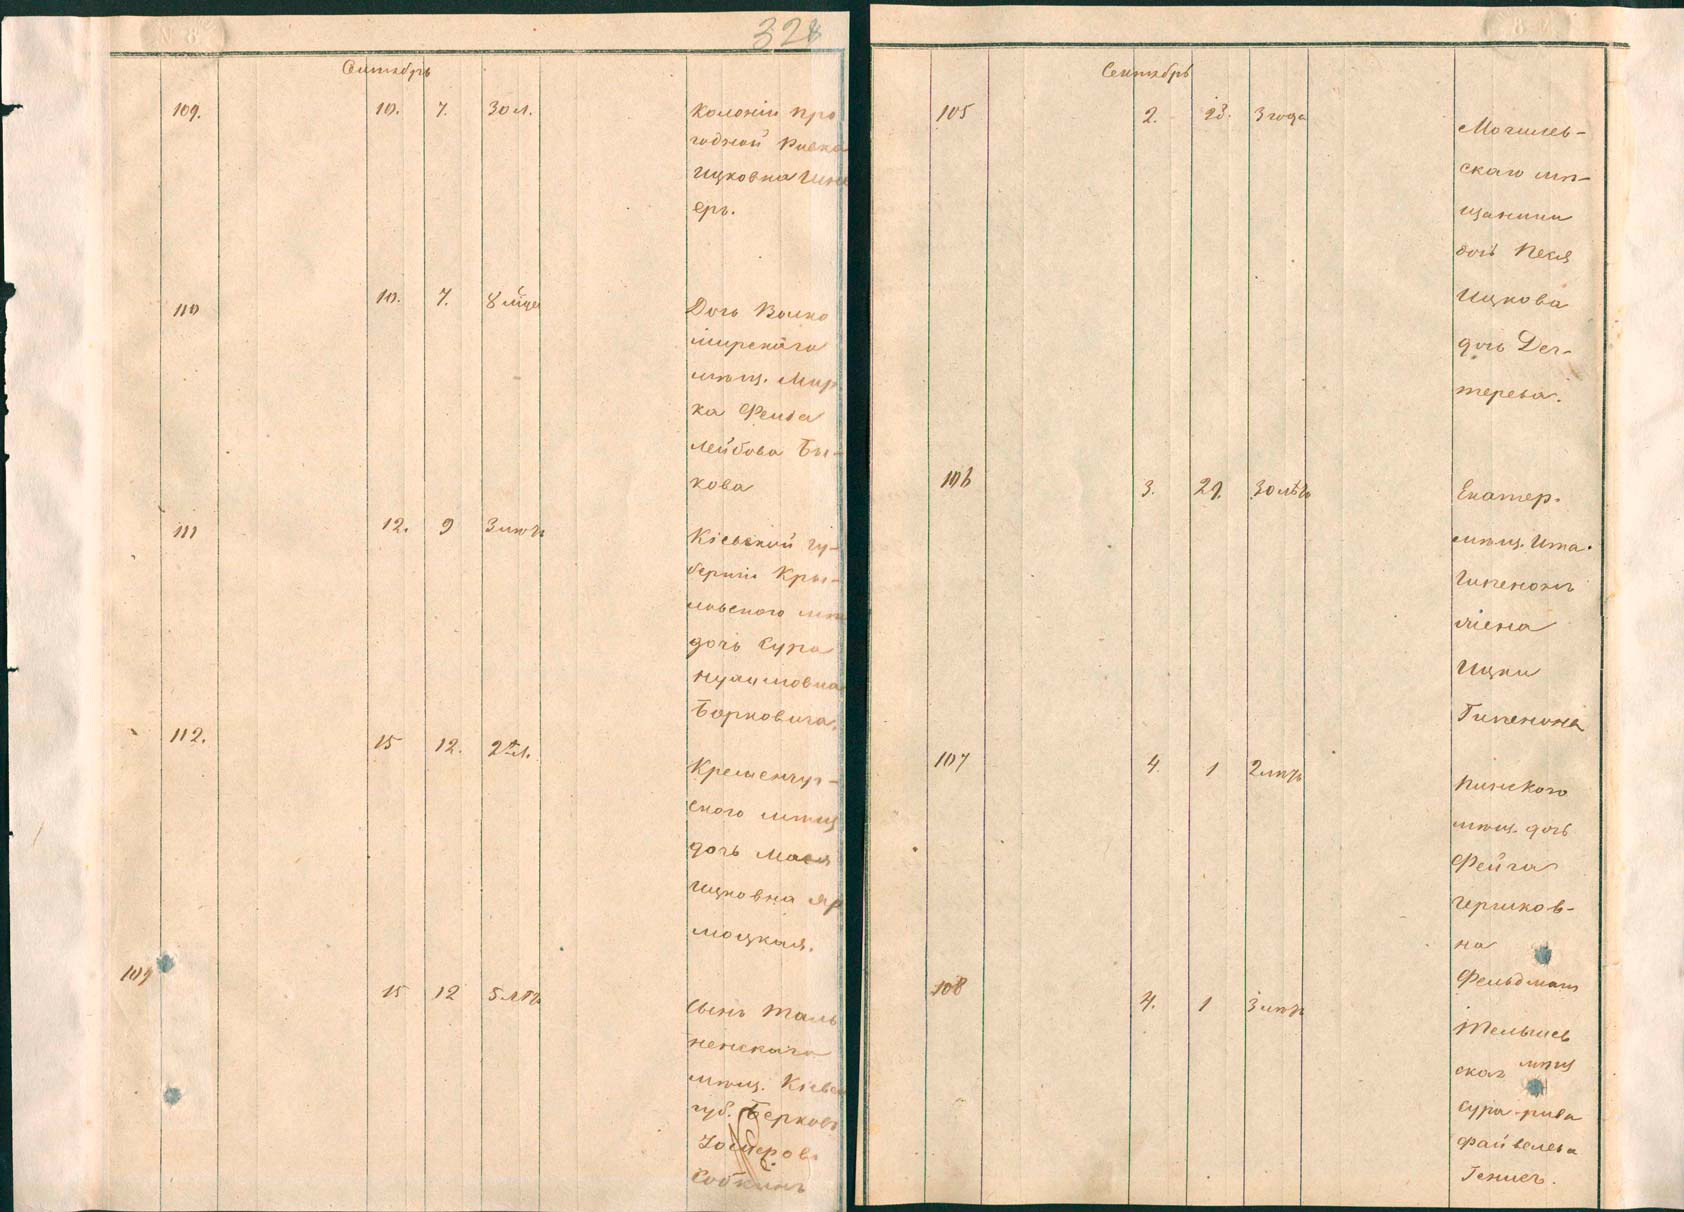 328
Сентябрь
109. 10. 7. 30 л.
Колоніи При
годной Ривка
Ицковна
еръ.
110 10. 7. 8 мѣце
Дочь Вилко
мирскаго
мѣщ. Мир
ка Фейга
Лейбова Бы-
кова
111 12. 9 3 лѣтъ
Кіевской гу-
берніи Кры-
ловского мѣщ
дочь Сура
Нухимовна
Берковича.
112. 15 12. 2 л.
Кременчуг-
ского мѣщ
дочь Мася
Ицковна Яр
моцкая.
109 15 12 5 лѣтъ
Сынъ Таль
ненскаго
мѣщ. Кіевс
губ. Берковъ
Собкинъ
Сентябрь
105 2. 28. 3 года
Могилев-
скаго мѣ-
щанина
дочь Песя
Ицкова
дочь Дег-
терева.
106 3. 29. 30 лѣтъ
Екатер.
мѣщ. Ита
жена
Ицки
Гипенона
107 4. 1 2 лѣтъ
Пинского
мѣщ. дочь
Фейга
Гершков-
на
Фельдман
108 4. 1 3 лѣтъ
Тельшев
ская мѣщ
Сура-Рива
Файвелева
Гениег.